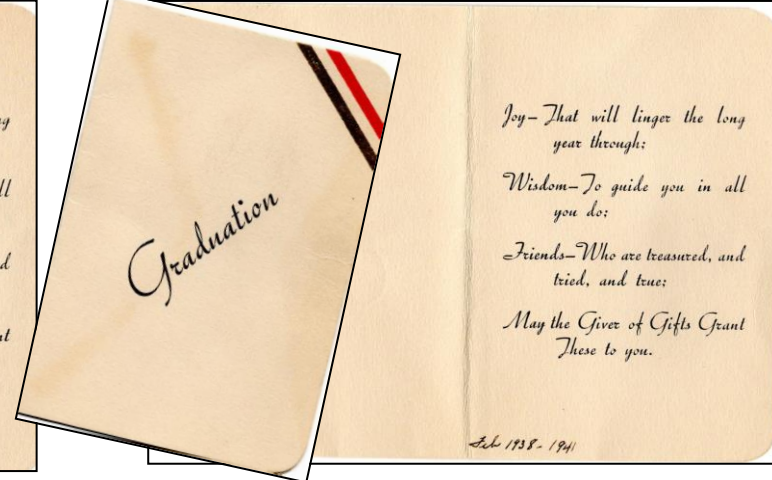 Graduation
Joy—That will linger the long
year through;
Wisdom—To guide you in all
you do;
Friends—Who are treasured, and
tried, and true;
May the Giver of Gifts Grant
These to you.
Feb 1938 - 1941